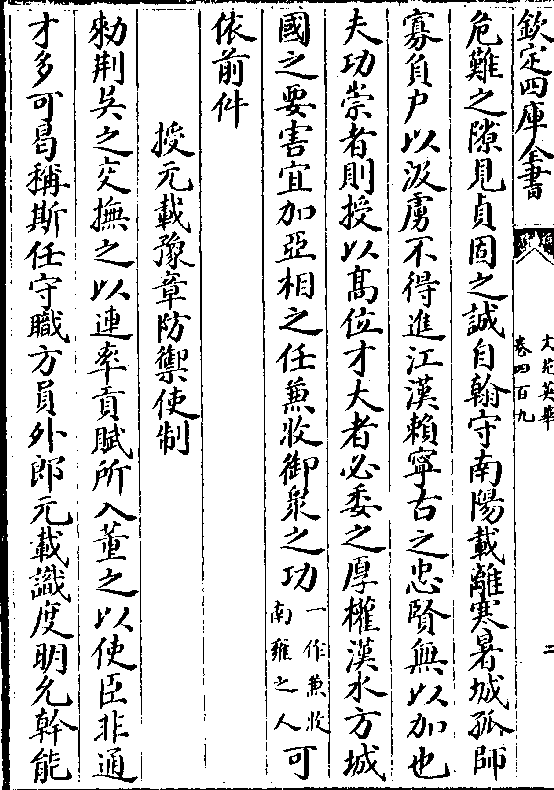 欽定四庫全書
文苑英華
卷四百九
二
危難之隙見貞固之誠自翰守南陽載離寒暑城孤師
寡負户以汲虜不得進江漢賴寧古之忠賢無以加也
夫功崇者則授以髙位才大者必委之厚權漢水方城
國之要害宜加亞相之任兼收御衆之功一作兼收南雍之人可
依前件
授元載豫章防禦使制
勑荆吳之交撫之以連率貢賦所入董之以使臣非通
才多可曷稱斯任守職方員外郎元載識度明允幹能